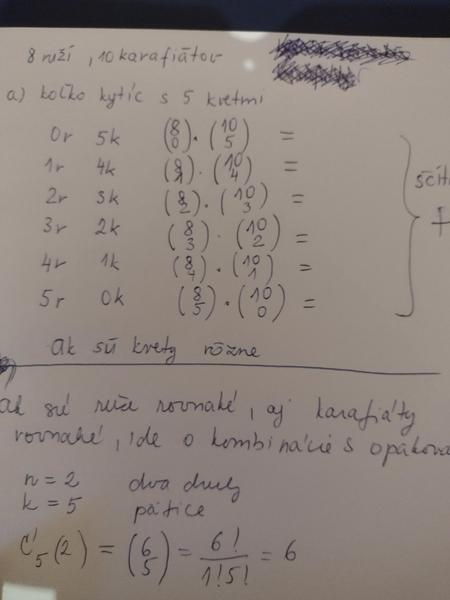 8 ruží, 10 karafiátov
a) koľko kytíc s 5 kvetmi
0r 5k (8 0) · (10 5) =
1r 4k (8 1) · (10 4) =
2r 3k (8 2) · (10 3) =
3r 2k (8 3) · (10 2) =
4r 1k (8 4) · (10 1) =
5r 0k (8 5) · (10 0) =
+
Ak sú kvety rôzne
ak sú ruže rovnaké, aj karafiáty
rovnaké, ide o kombinácie s
n = 2 dva druhy
k = 5 pätice
C'5(2) = (6 5) = 6! / 1!5! = 6